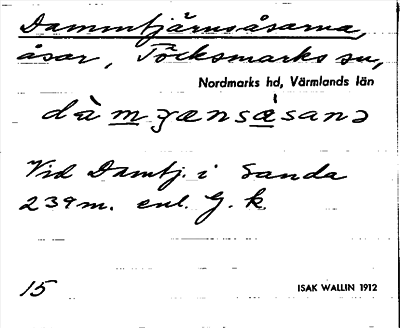 Dammtjärnsåsarna,
åsar, Töcksmarks sn,
Nordmarks hd, Värmlands län
Vid Damtj. i Sanda
239 m. enl. G. k.
15
ISAK WALLIN 1912